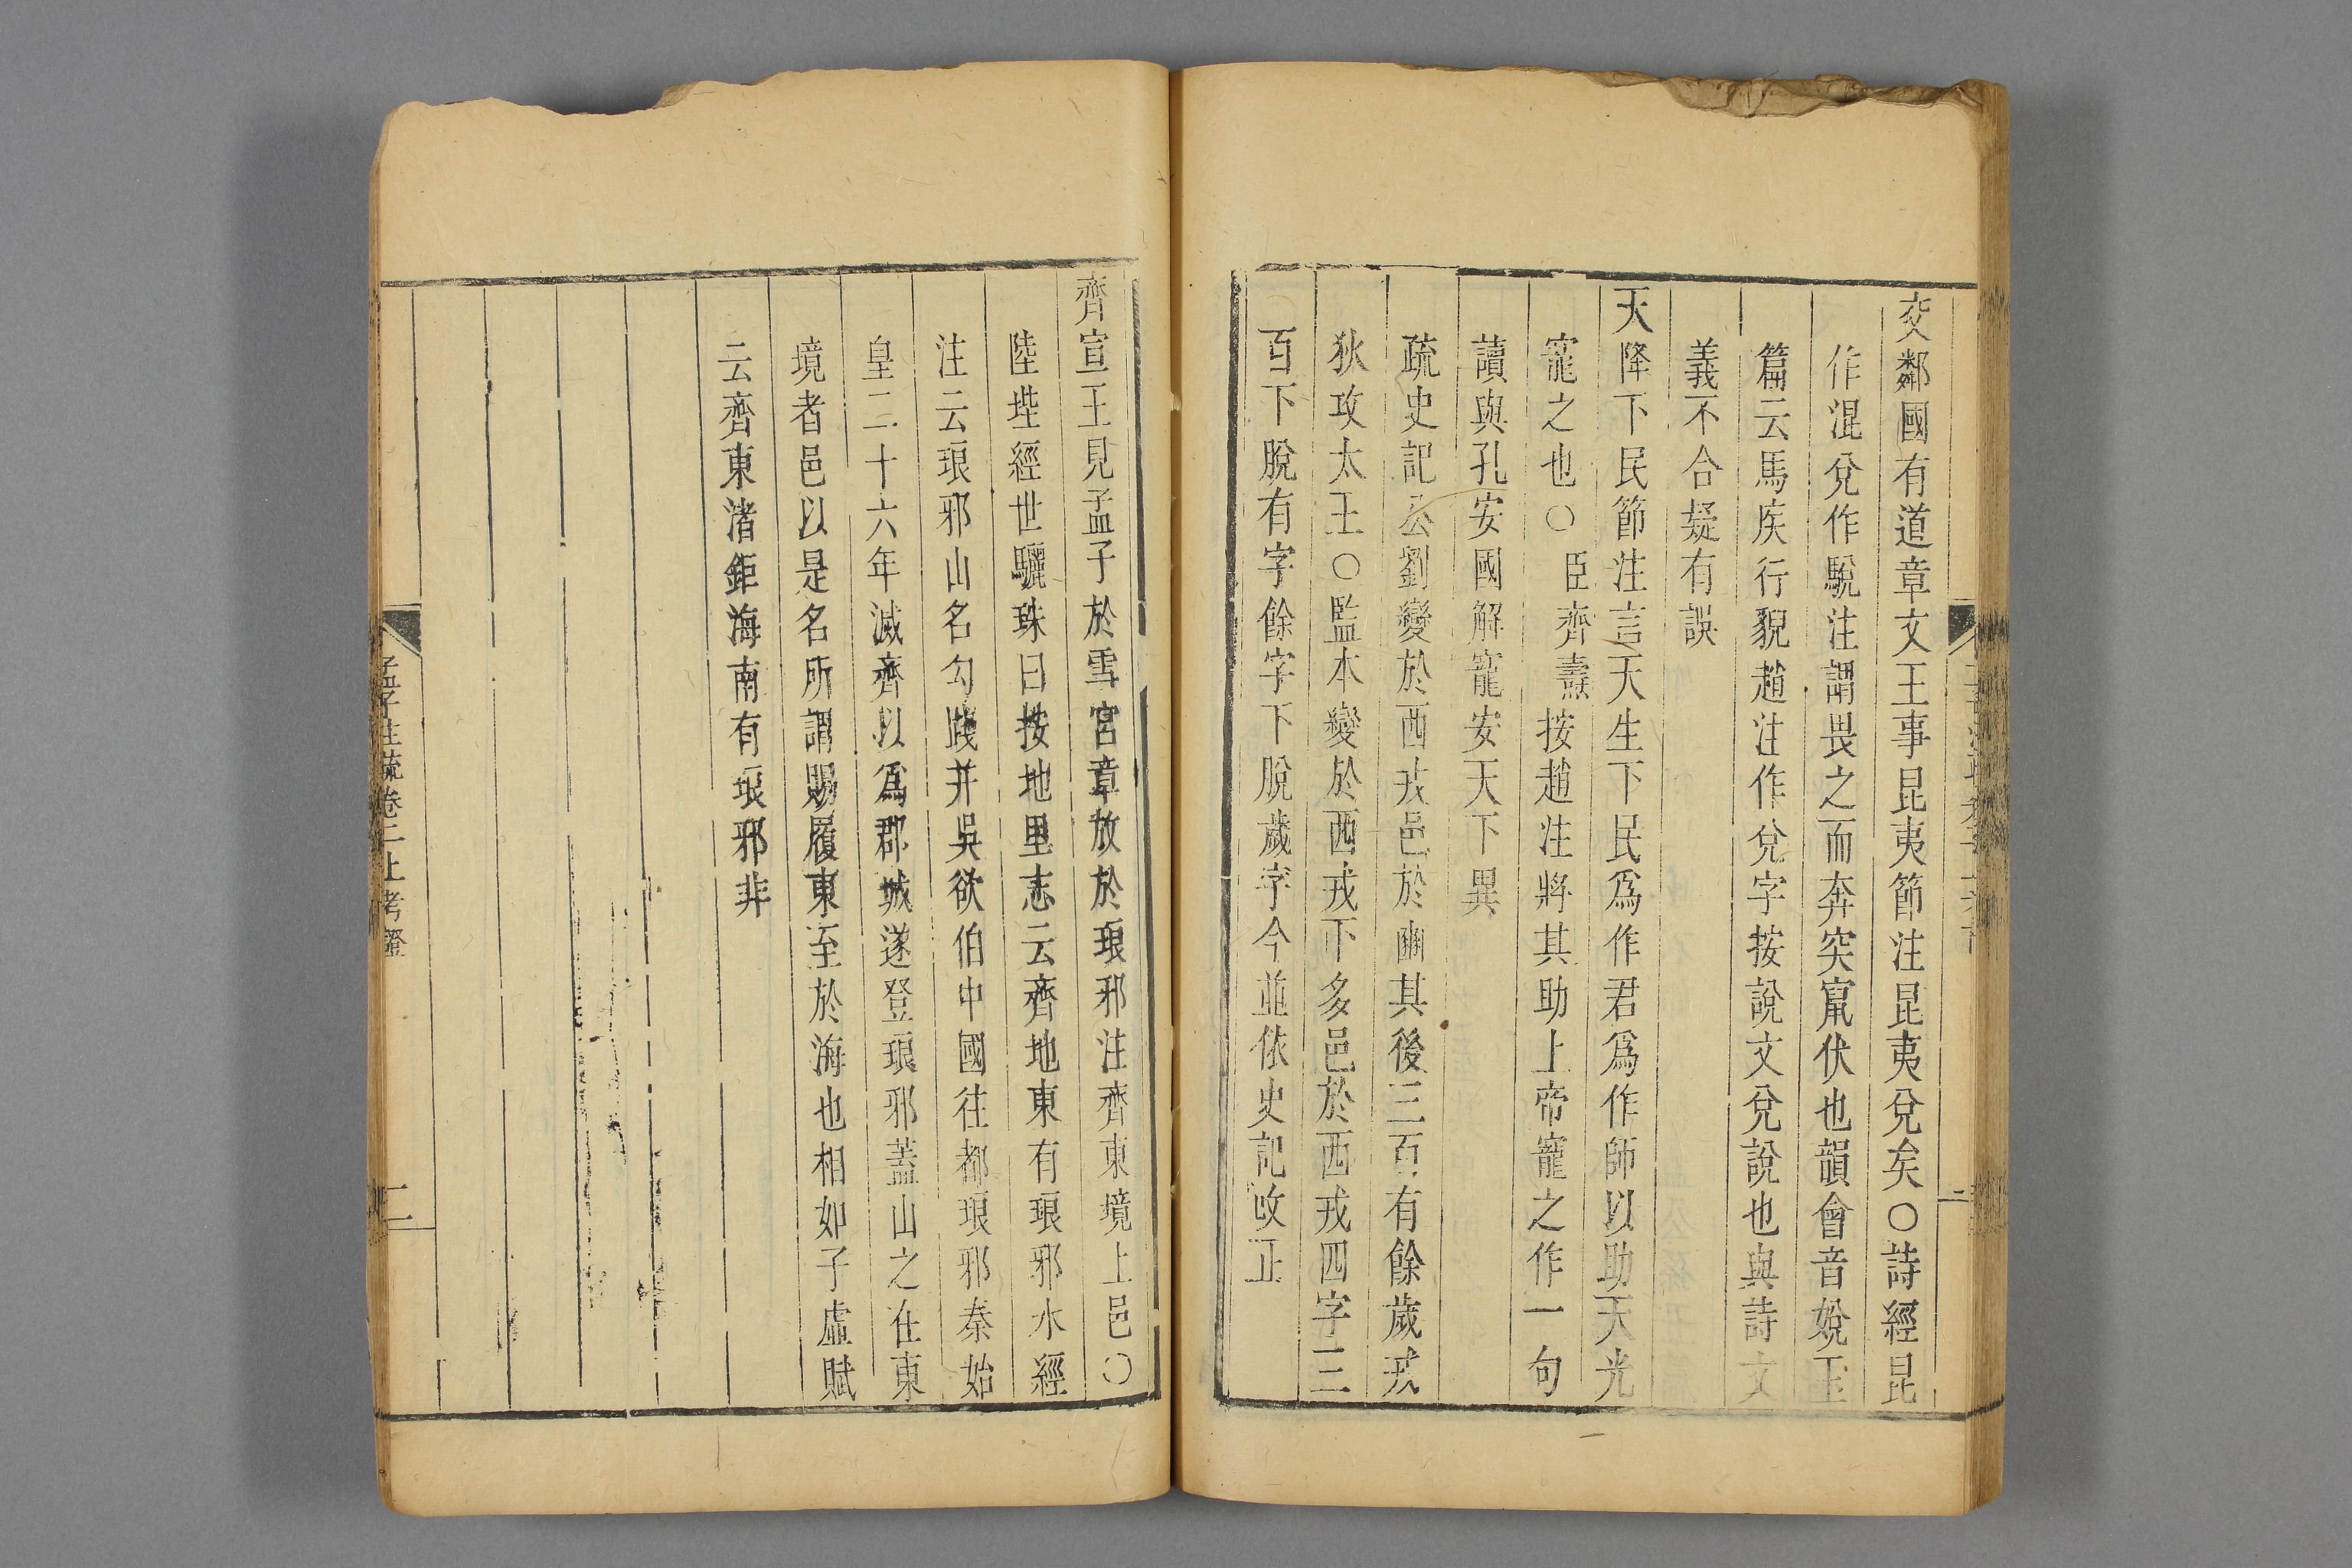 交鄰國有道章文王事昆夷節注昆夷兌矣〇詩經昆
作混兌作駾注謂畏之而奔突竄伏也韻會音娧玉
篇云馬疾行貌趙注作兌字按說文兌說也與詩文
義不合疑有誤
天降下民節注言天生下民爲作君爲作師以助天光
寵之也〇臣齊燾按趙注將其助上帝寵之作一句
讀與孔安國解寵安天下異
疏史記公劉變於西戎邑於豳其後三百有餘歲戎
狄攻太王〇監本變於西戎下多邑於西戎四字三
百下脫有字餘字下脫歲字今並依史記改正
齊宣王見孟子於雪宮章放於琅邪注齊東境上邑〇
陸埊經世驪珠曰按地里志云齊地東有琅邪水經
注云琅邪山名勾踐并吳欲伯中國徃都琅邪秦始
皇二十六年滅齊以爲郡城遂登琅邪蓋山之在東
境者邑以是名所謂賜履東至於海也相如子虛賦
云齊東渚鉅海南有琅邪非
孟子注疏卷二上考證
二